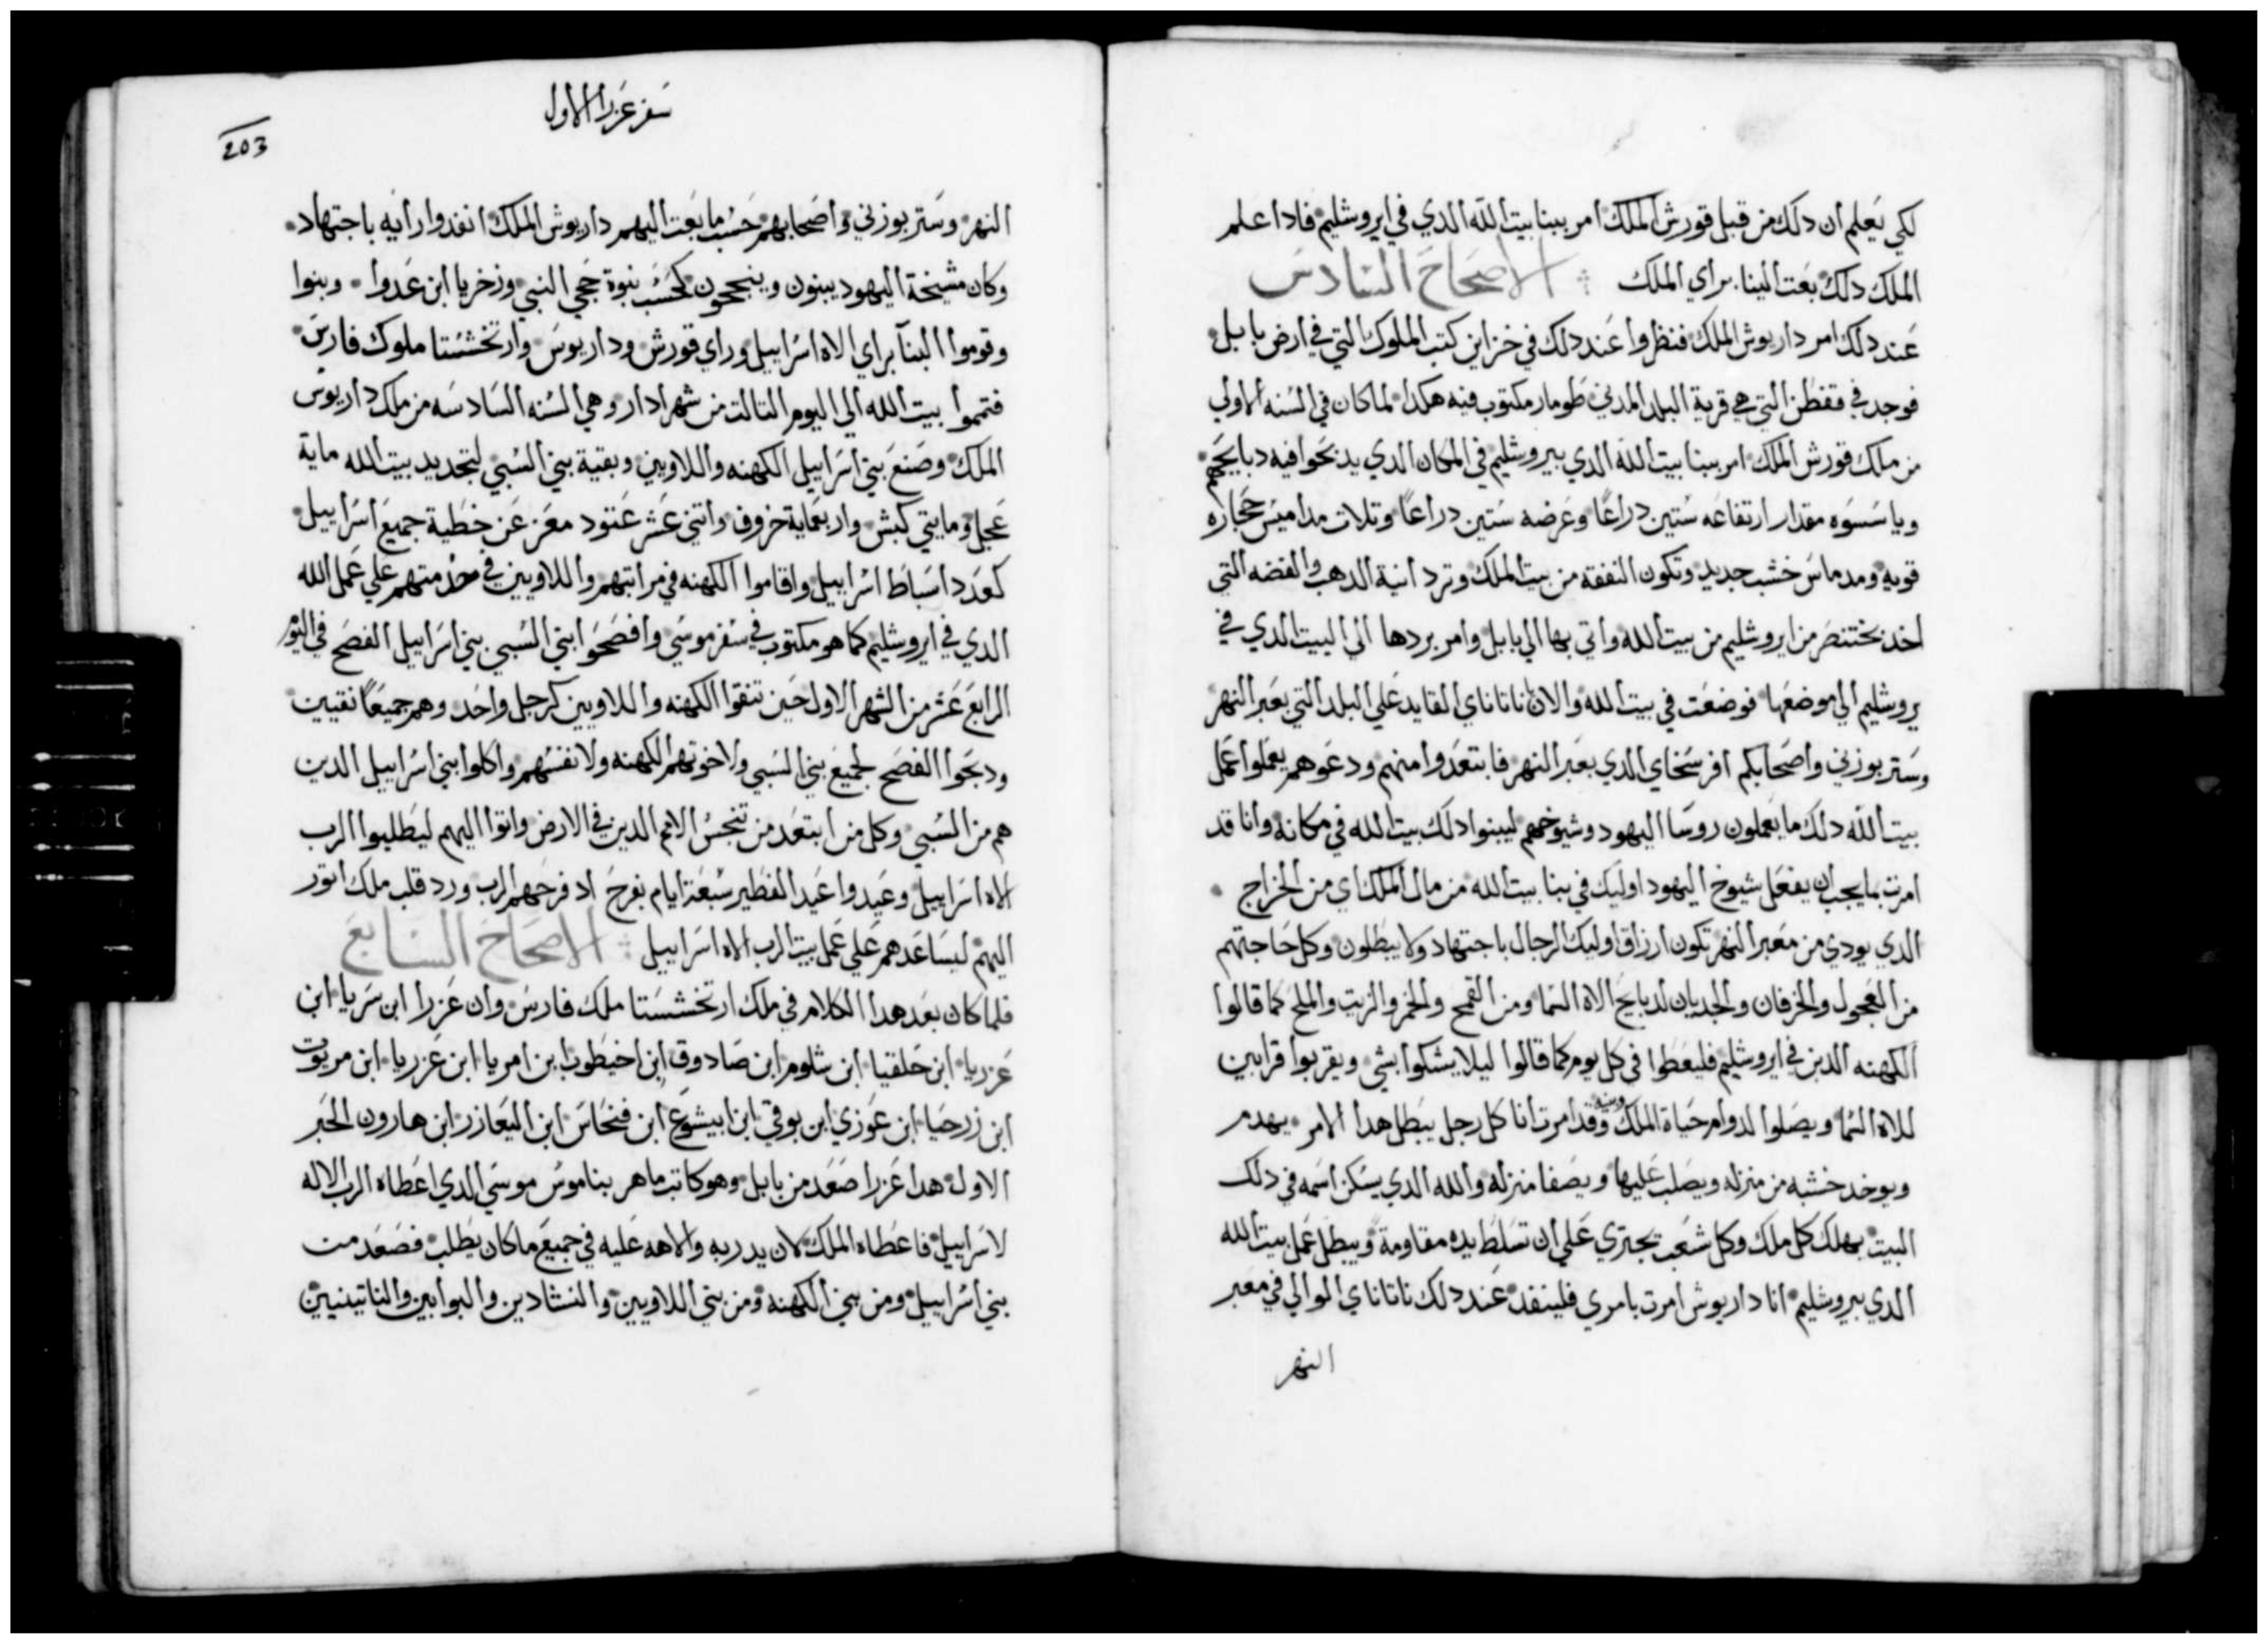 لكي يعلم ان دلك من قبل قورش الملك امر ببنا بيت الله الدي في ايروشليم فادا علم
الملك دلك بعت الينا براي الملك الاصحاح السادس
عند دلك امر داريوش الملك فنظروا عند دلك في خزاين كتب الملوك التي في ارض بابل
فوجد في قفطن التي هي قرية البلد المدني طومار مكتوب فيه هكدا لما كان في السنه الاولي
من ملك قورش الملك امر ببنا بيت الله الدي بيروشليم في المكان الدي يدبحوا فيه دبايحهم
وياسسوه مقدار ارتفاعه ستين دراعًا وعرضه ستين دراعًا وتلات مداميس حجاره
قويه ومدماس خشب جديد وتكون النفقة من بيت الملك وترد انية الدهب والفضه التي
اخد بختنصر من ايروشليم من بيت الله واتي بها الي بابل وامر بردها الي البيت الدي في
يروشليم الي موضعها فوضعت في بيت الله والان ناتاناي القايد علي البلد التي بعبر النهر
وستربوزني واصحابكم افرسخاي الدي بعبر النهر فابتعدوا منهم ودعوهم يعملوا عمل
بيت الله دلك ما يعملون روسا اليهود وشيوخهم ليبنوا دلك بيت الله في مكانه وانا قد
امرت بما يجب ان يفعل شيوخ اليهود اوليك في بنا بيت الله من مال الملك اي من الخراج
الدي يودي من معبر النهر تكون ارزاق اوليك الرجال باجتهاد ولا يبطلون وكل حاجتهم
من العجول والخرفان والجديان لدبايح الاه السما ومن القمح والخمر والزيت والملح كما قالوا
الكهنه الدين في ايروشليم فليعطوا في كل يوم كما قالوا ليلا يشكوا بشي ويقربوا قرابين
للاه السما ويصلوا لدوام حياة الملك وبنيه وقد امرت انا كل رجل يبطل هدا الامر يهدم
ويوخد خشبه من منزله ويصلب عليها ويصفا منزله والله الدي يسكن اسمه في دلك
البيت يهلك كل ملك وكل شعب يجتري علي ان تسلط يده مقاومة ويبطل عمل بيت الله
الدي بيروشليم انا داريوش امرت بامري فلينفد عند دلك ناتاناي الوالي في معبر
النهر
سفر عزرا الاول
203
النهر وستربوزني واصحابهم حسب ما بعت اليهم داريوش الملك انفدوا رايه باجتهاد
وكان مشيخة اليهود يبنون وينجحون كحسب نبوة حجي النبي وزخريا ابن عدوا وبنوا
وقوموا البنآ براي الاه اسراييل وراي قورش وداريوس وارتخششتا ملوك فارس
فتموا بيت الله الي اليوم التالت من شهر ادار وهي السنه السادسه من ملك داريوس
الملك وصنع بني اسراييل الكهنه واللاويين وبقية بني السبي لتجديد بيت الله ماية
عجل ومايتي كبش واربعماية خروف واتني عشر عتود معز عن خطية جميع اسراييل
كعدد اسباط اسراييل واقاموا الكهنه في مراتبهم واللاويين في خدمتهم علي عمل الله
الدي في ايروشليم كما هو مكتوب في سفر موسي وافصحوا بني السبي بني اسراييل الفصح في اليوم
الرابع عشر من الشهر الاول حين تنقوا الكهنه واللاويين كرجل واحد وهم جميعًا نقيين
ودبحوا الفصح لجميع بني السبي ولاخوتهم الكهنه ولانفسهم واكلوا بني اسراييل الدين
هم من السبي وكل من ابتعد من تنجس الامم الدين في الارض واتوا اليهم ليطلبوا الرب
الاه اسراييل وعيدوا عيد الفطير سبعة ايام بفرح اد فرحهم الرب ورد قلب ملك اتور
اليهم ليساعدهم علي عمل بيت الرب الاه اسراييل الاصحاح السابع
فلما كان بعد هدا الكلام في ملك ارتخششتا ملك فارس وان عزرا ابن سريا ابن
عزريا ابن حلقيا ابن شلوم ابن صادوق ابن اخيطوب ابن امريا ابن عزريا ابن مريوت
ابن زرحيا ابن عوزي ابن بوقي ابن ابيشوع ابن فنحاس ابن اليعازر ابن هارون الحبر
الاول هدا عزرا صعد من بابل وهو كاتب ماهر بناموس موسي الدي اعطاه الرب الاله
لاسراييل فاعطاه الملك لان يد ربه والاهه عليه في جميع ما كان يطلب فصعد من
بني اسراييل ومن بني الكهنه ومن بني اللاويين والنشادين والبوابين والناتينيين